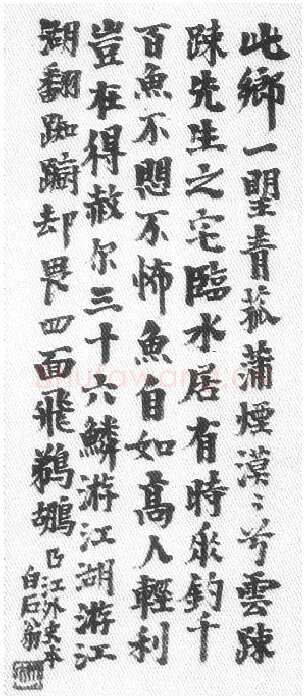 此鄉一望青菰蒲煙漠〻兮雲疎
疎先生之宅臨水居有時釣千
百魚不悶不怖魚自如高人輕利
豈在得赦尔三十六鱗游江湖游江
湖翻踟躕却畏四面飛鵜鶘己江外史本
白石翁